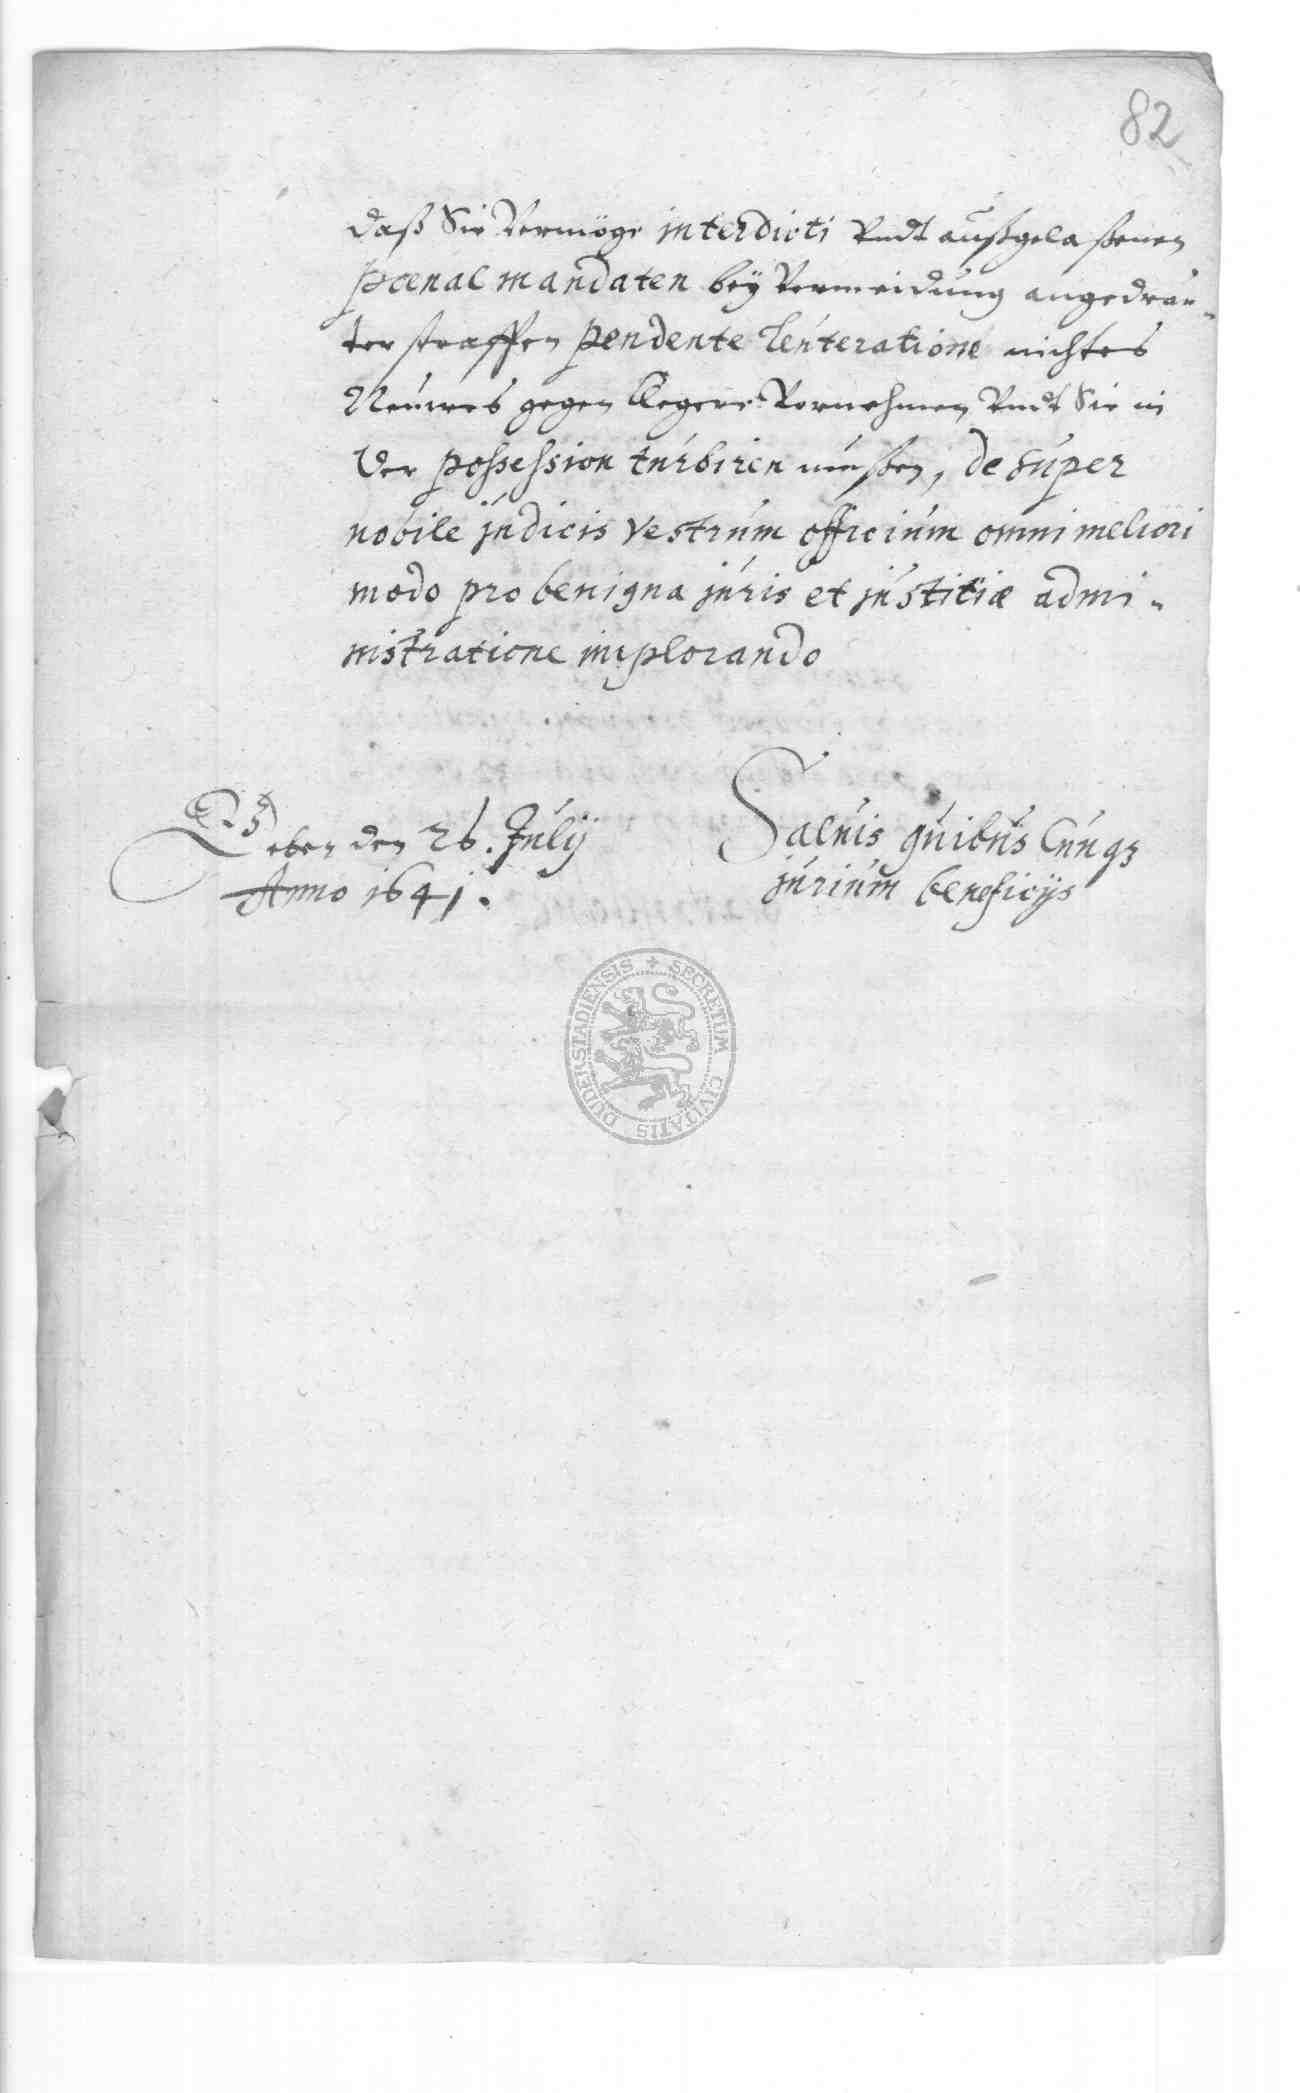 82
daß Sie Vermöge interdicti Vndt außgelaßenen
pœnal mandaten beÿ Vermeidung angedräu-
ter straffen pendente leuteratione nichtes
Neuwes gegen Clegere Vornehmen Vndt Sie in
der possession turbiren mußen, de super
nobile judicis vestrum officium omni meliori
modo pro benigna juris et justitiæ admi-
nistratione implorando
Geben den 26. Julij
Anno 1641.
Salvis quibus cunqz
jurium beneficijs
SECRETUM CIVITATIS DUDERSTADIENSIS